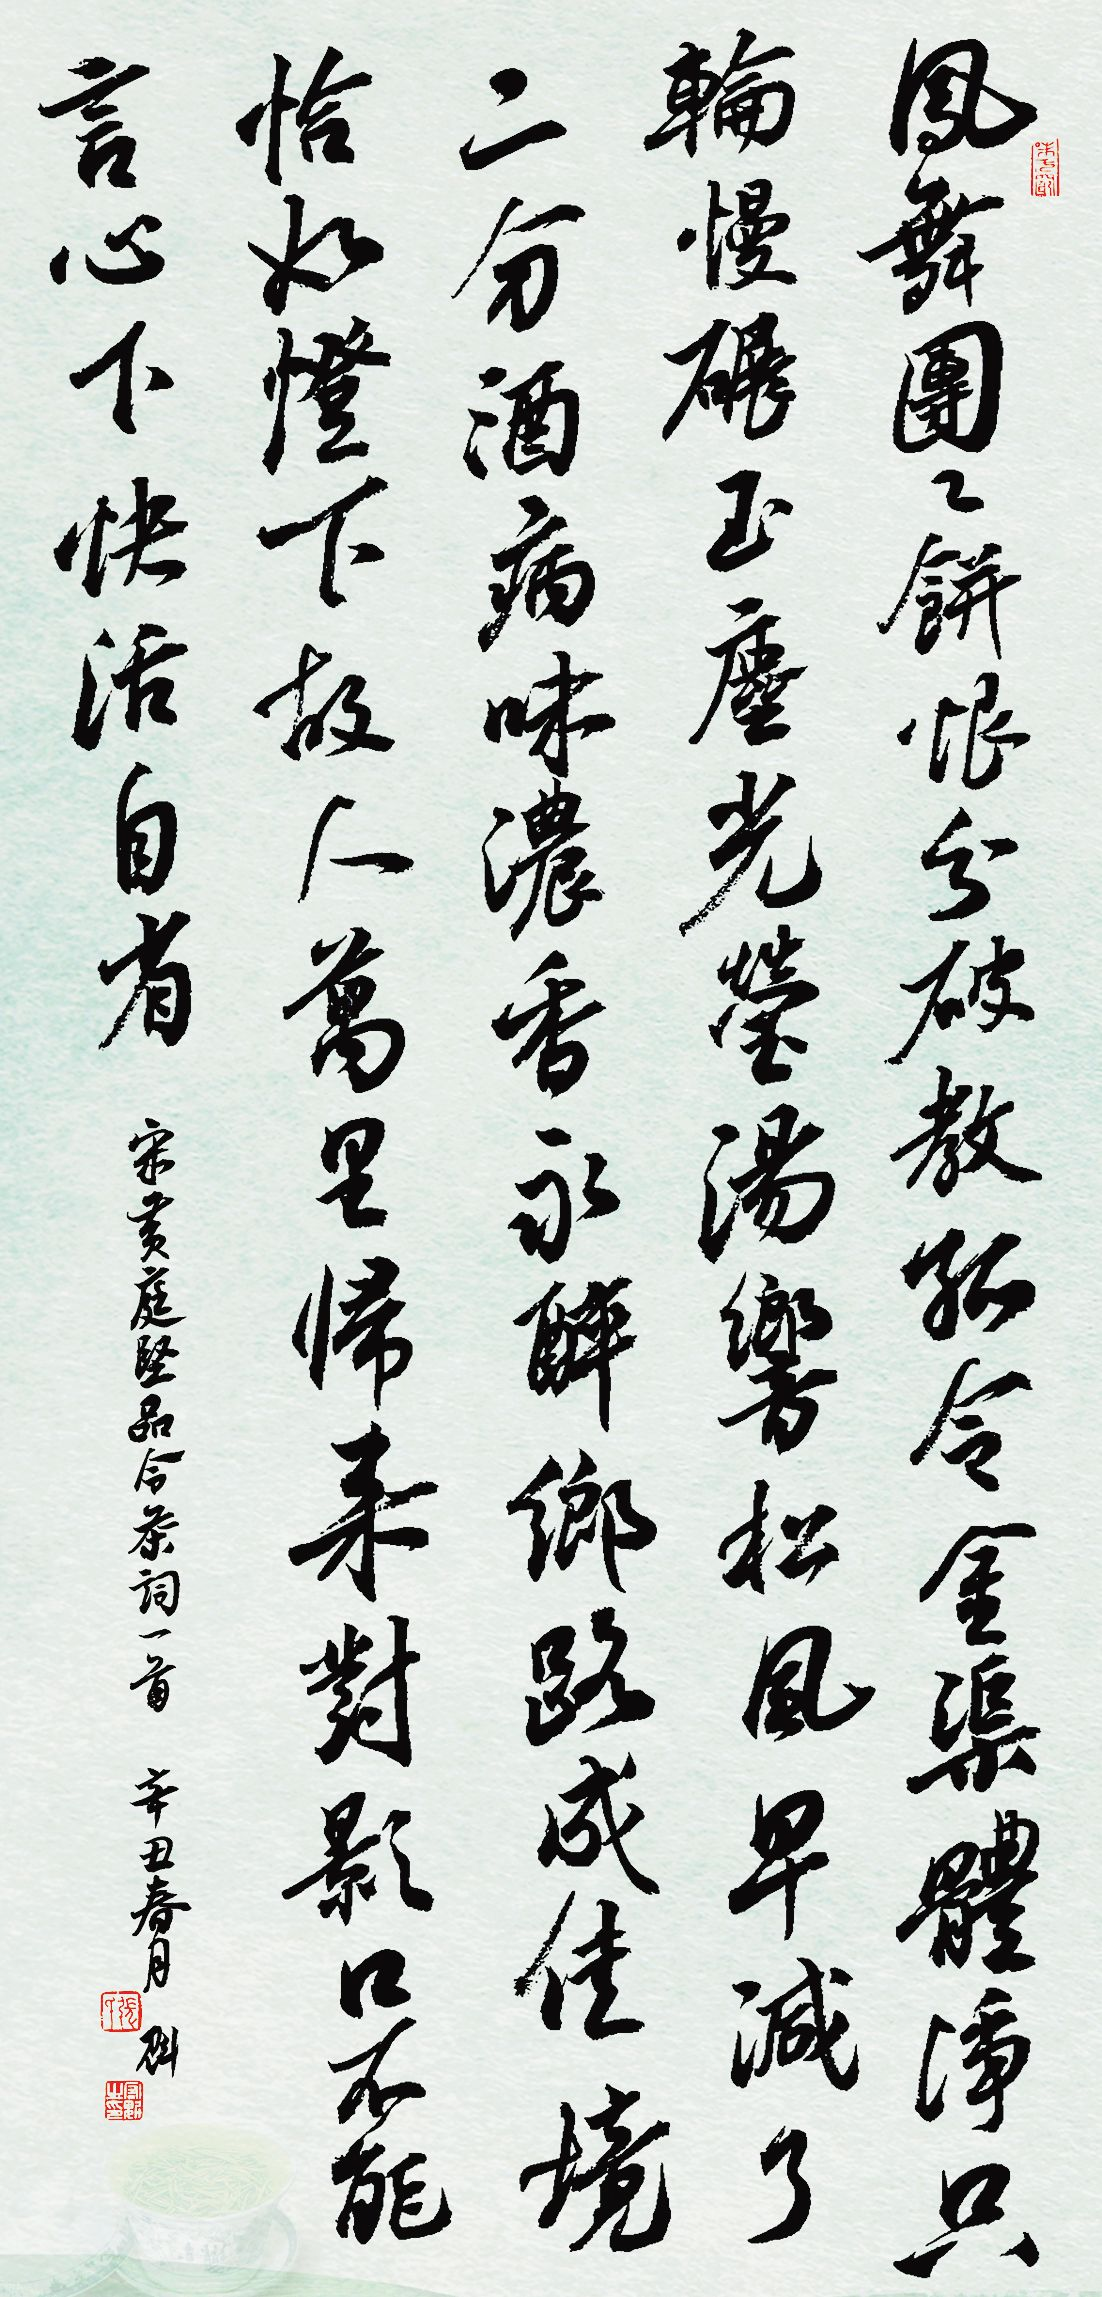 鳳舞團々餅恨分破教孤令金渠體淨只
輪慢碾玉塵光瑩湯響松風早減了
二分酒病味濃香永醉鄉路成佳境
恰如燈下故人萬里歸來對影口不能
言心下快活自省
宋黃庭堅品令茶詞一首 辛丑春月